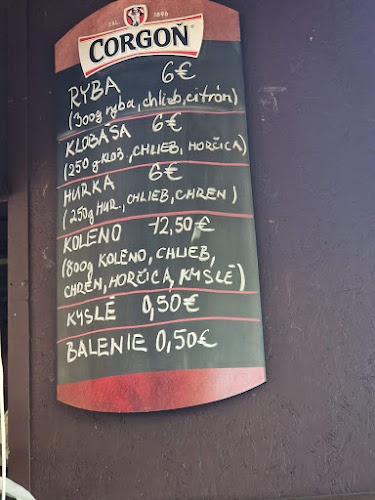 ZAL. 1896
CORGOŇ
RYBA 6€
(300g ryba, chlieb, citrón)
KLOBÁSA 6€
(250 g KLOB, CHLIEB, HORČICA)
HURKA 6€
(250g HUR., CHLIEB, CHREN)
KOLENO 12,50€
(800g KOLENO, CHLIEB,
CHREN, HORČICA, KYSLÉ)
KYSLÉ 0,50€
BALENIE 0,50€